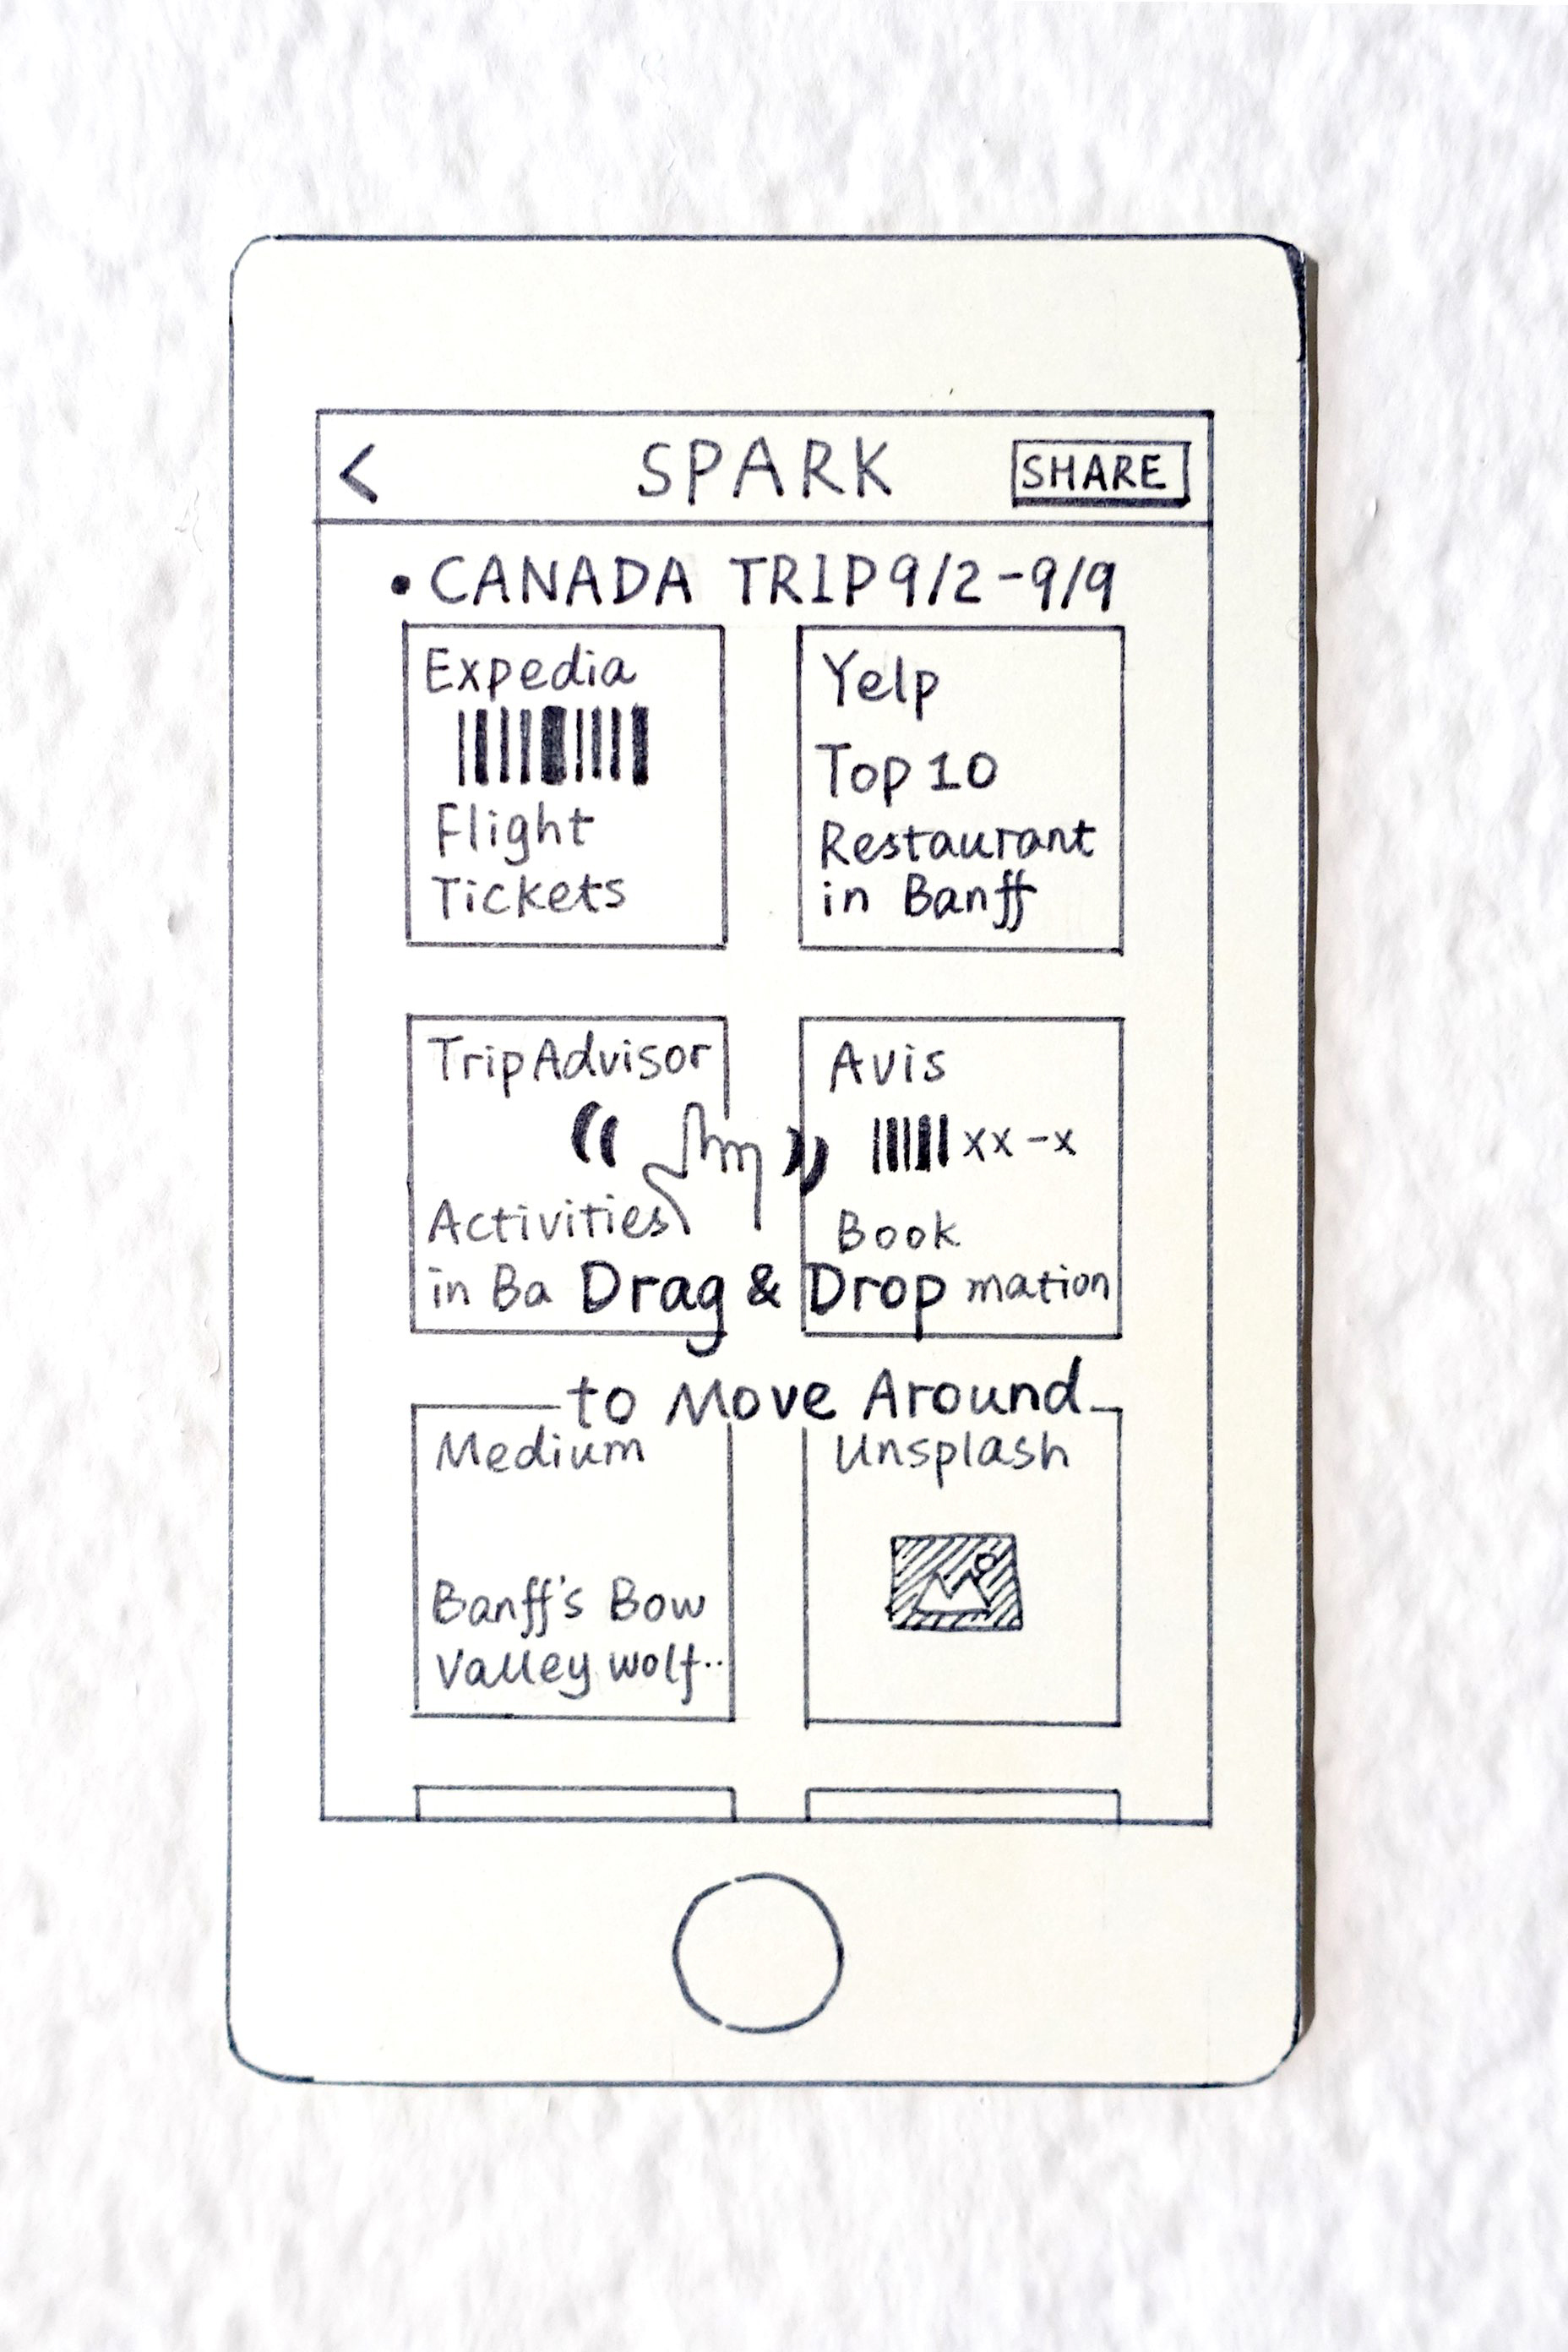 < SPARK SHARE
• CANADA TRIP 9/2-9/9
Expedia
Flight
Tickets
Yelp
Top 10
Restaurant
in Banff
TripAdvisor
Activities
in Ba
Avis
xx-x
Book
mation
Drag & Drop
to Move Around
Medium
Banff's Bow
Valley wolf..
Unsplash